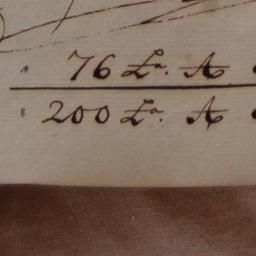 76 Lª. A
200 Lª. A